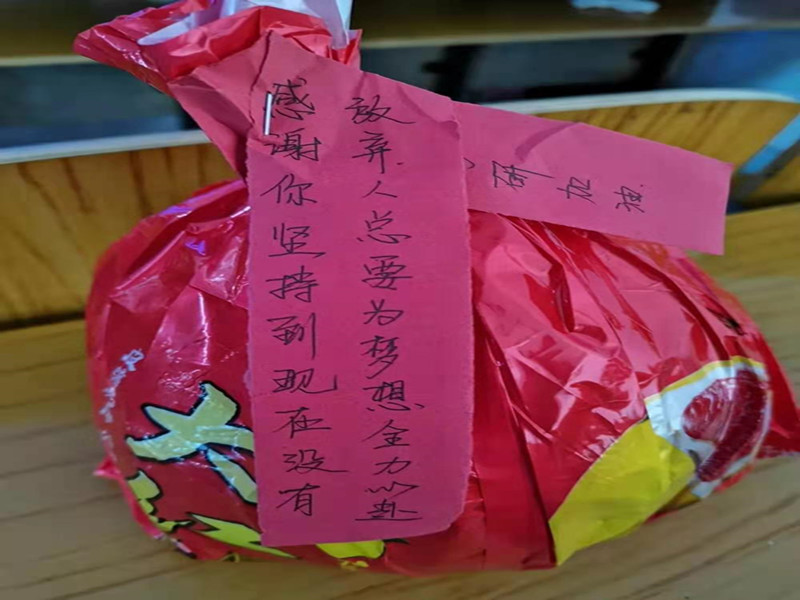 感谢你坚持到现在没有
放弃人总要为梦想全力以赴
研加油